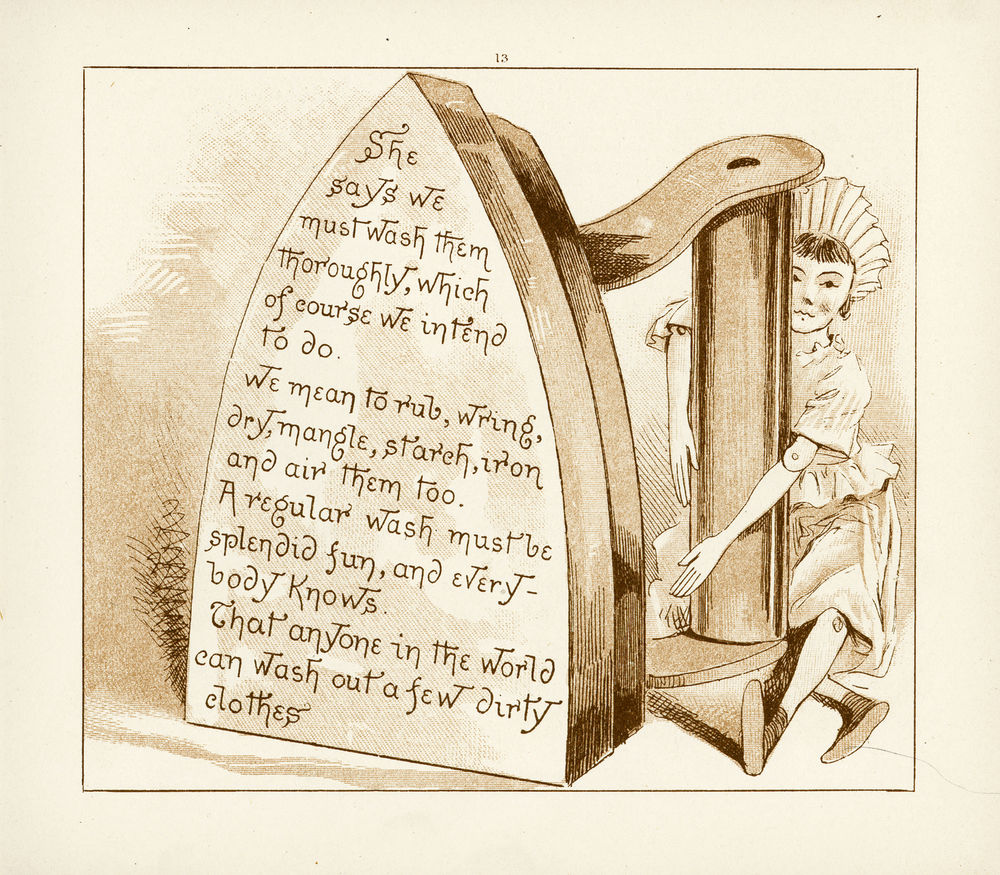 13
She
says we
must wash them
thoroughly, which
of course we intend
to do.
We mean to rub, wring,
dry, mangle, starch, iron
and air them too.
A regular wash must be
splendid fun, and every-
body knows.
That anyone in the world
can wash out a few dirty
clothes